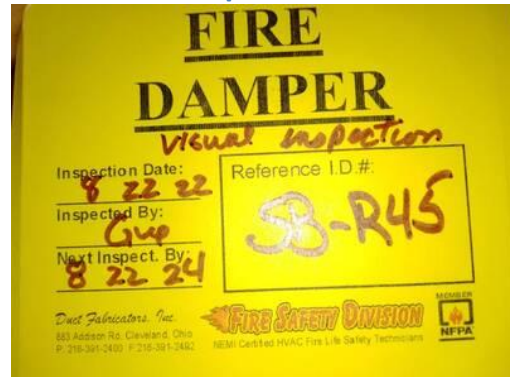 FIRE
DAMPER
Visual inspection
Inspection Date:
8 22 22
Inspected By:
Gup
Next Inspect. By
8 22 24
Reference I.D.#:
SB-R45
Duct Fabricators, Inc.
883 Addison Rd. Cleveland, Ohio
P: 216-391-2400 F: 216-391-2492
FIRE SAFETY DIVISION
NEMI Certified HVAC Fire Life Safety Technicians
MEMBER
NFPA